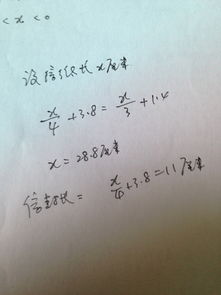 < x < 0
设信纸长 x 厘米
x/4 + 3.8 = x/3 + 1.4
x = 28.8厘米
信封长 = x/4 + 3.8 = 11厘米